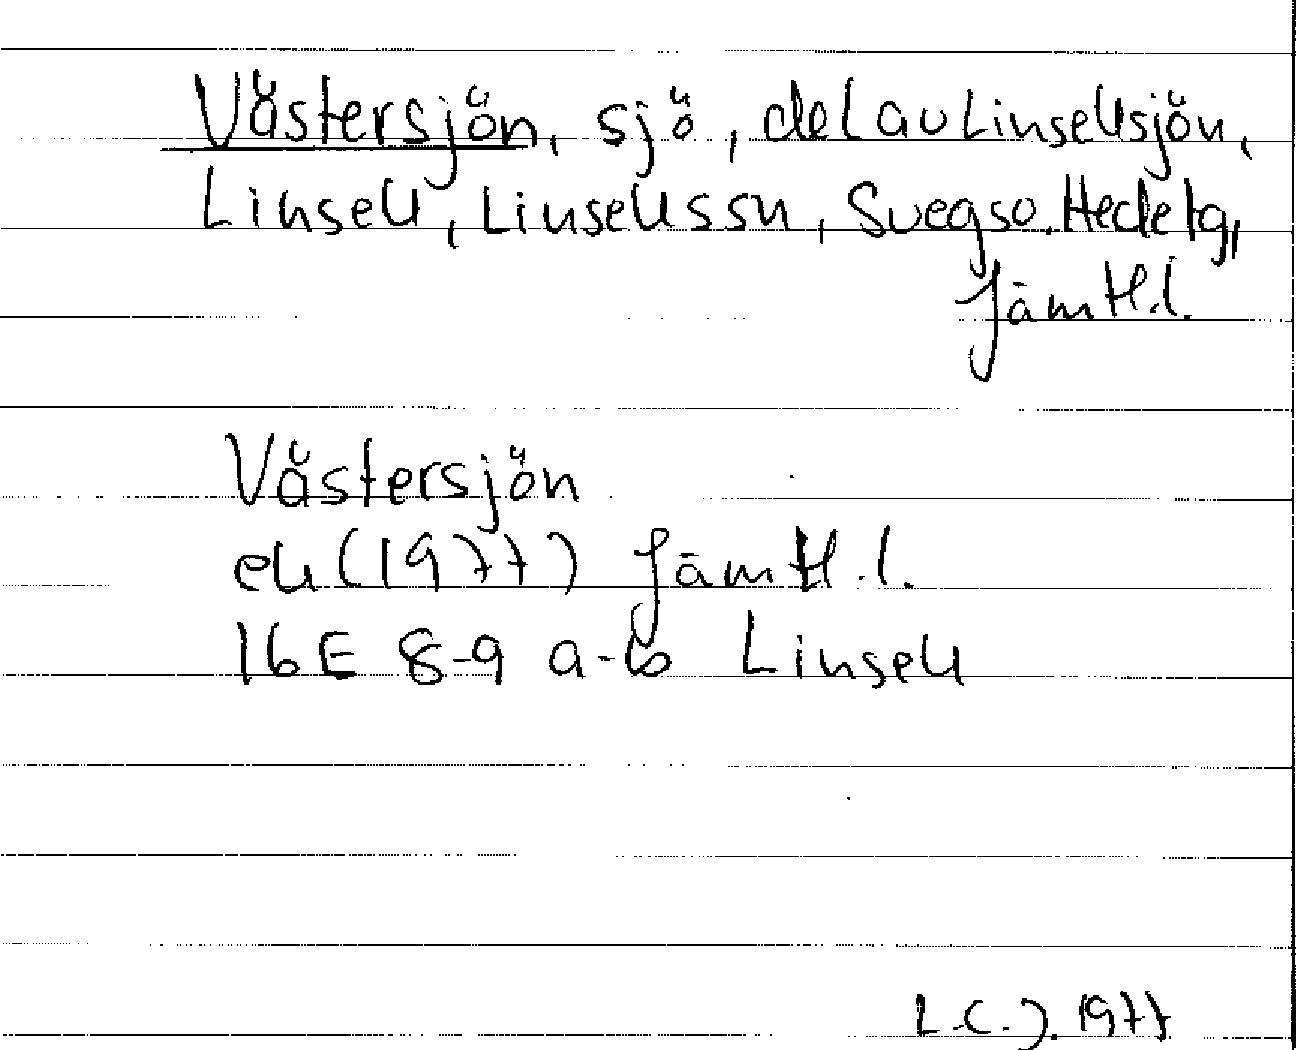 Västersjön, sjö, del av Linsellsjön,
Linsell, Linsells sn, Svegs o. Hede tg,
Jämtl.l.
Västersjön
ek (1977) Jämtl.l.
16E 8-9 a-b Linsell
L.C.J. 1977